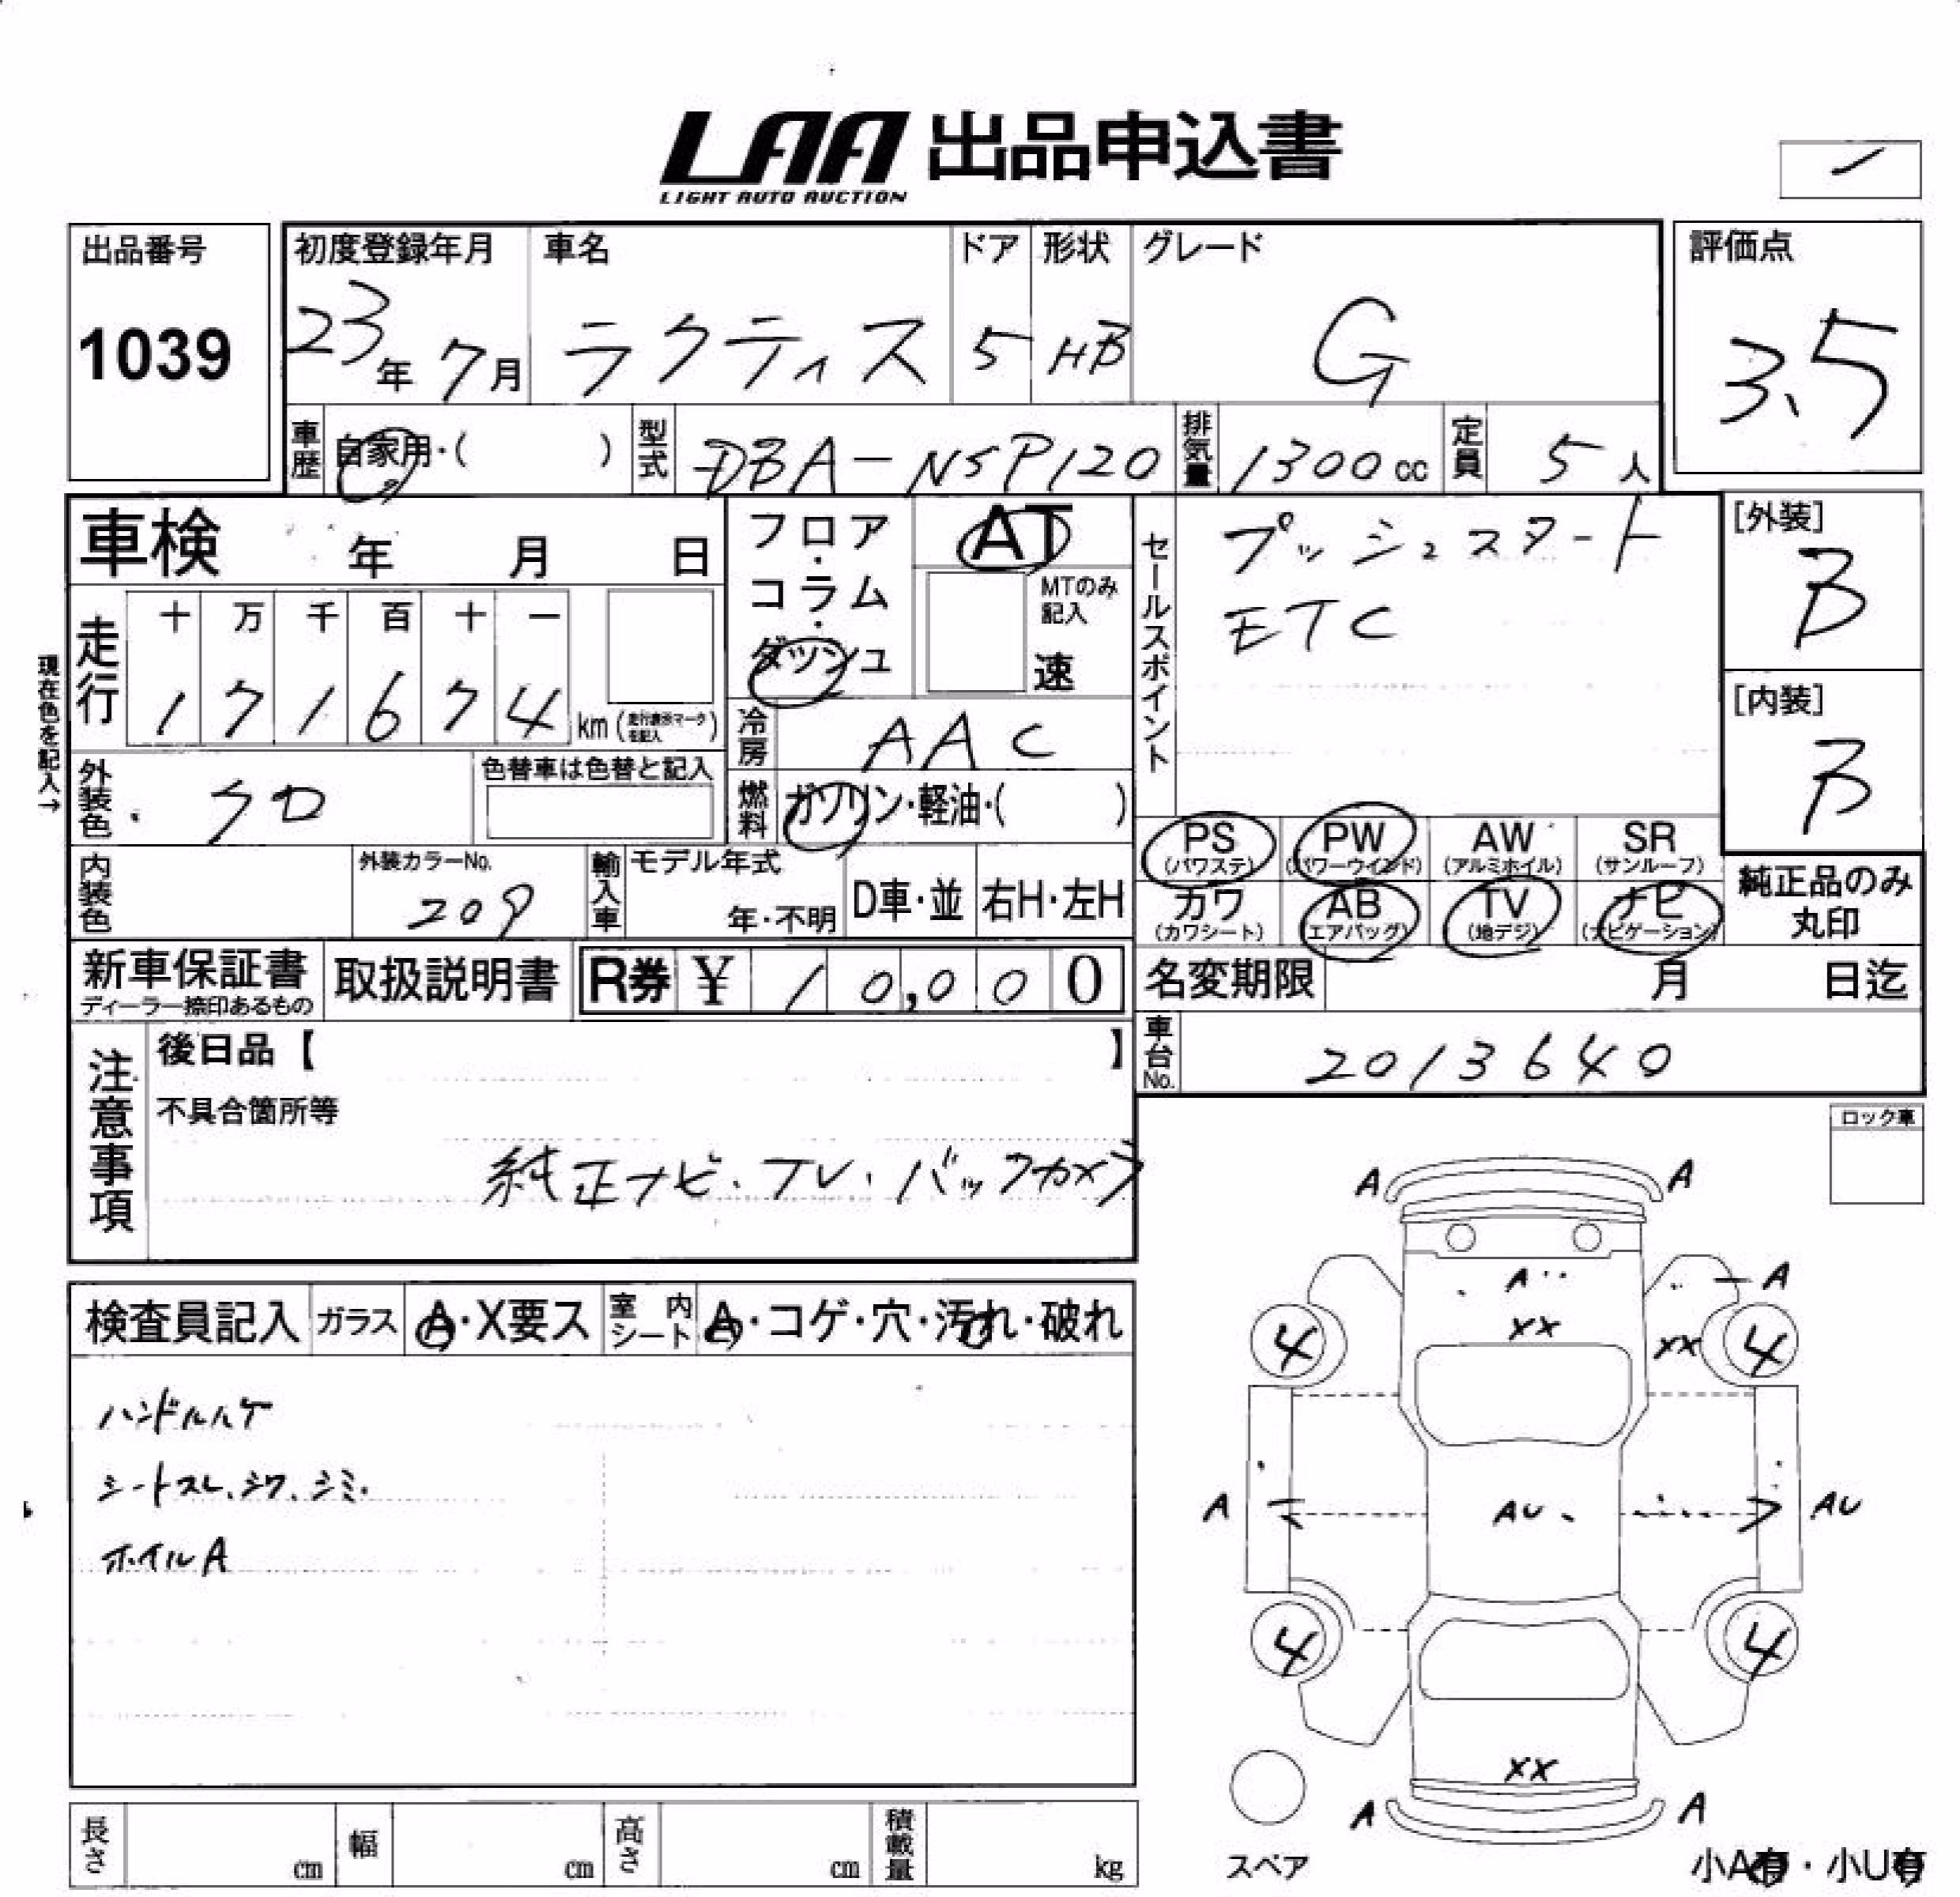 LAA 出品申込書
LIGHT AUTO AUCTION
出品番号
1039
初度登録年月
23年 7月
車名
ラクティス
ドア
5
形状
HB
グレード
G
評価点
3.5
車歴 自家用・( )
型式 DBA-NSP120
排気量 1300 cc
定員 5 人
車検 年 月 日
フロア・コラム・ダッシュ
AT
MTのみ記入
速
セールスポイント
プッシュスタート
ETC
[外装]
B
[内装]
B
現在色を記入→
走行
十 万 千 百 十 一
1 7 1 6 7 4 km (走行疑義マークを記入)
冷房 AAC
外装色 クロ
色替車は色替と記入
燃料 ガソリン・軽油・( )
PS (パワステ) PW (パワーウインド) AW (アルミホイル) SR (サンルーフ)
カワ (カワシート) AB (エアバッグ) TV (地デジ) ナビ (ナビゲーション)
純正品のみ丸印
内装色
外装カラーNo.
209
輸入車 モデル年式
年・不明
D車・並
右H・左H
新車保証書
ディーラー捺印あるもの
取扱説明書
R券 ¥ 10,000
名変期限 月 日迄
車台No. 2013640
注意事項
後日品【 】
不具合箇所等
純正ナビ・TV・バックカメラ
ロック車
検査員記入 ガラス A・X要ス 室内シート A・コゲ・穴・汚れ・破れ
ハンドルハゲ
シートスレ、シワ、シミ.
ホイルA
A A
A A
XX
4 XX 4
A AU AU
4 4
XX
A A
スペア
小A有・小U有
長さ cm 幅 cm 高さ cm 積載量 kg